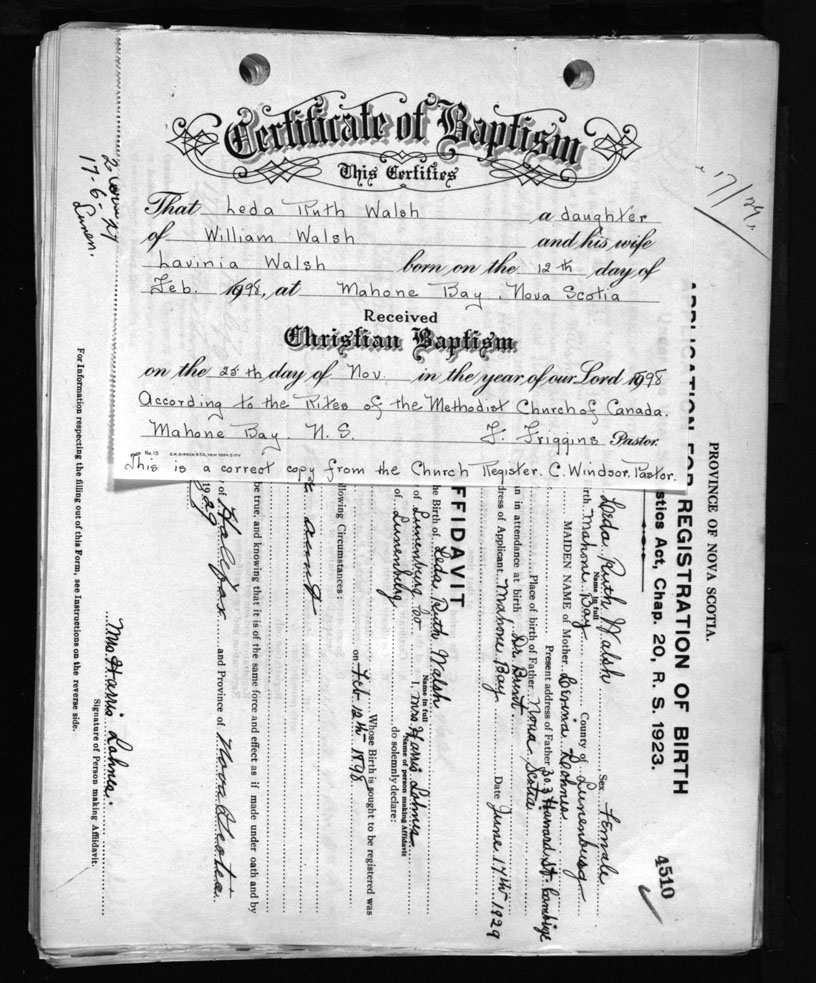 Certificate of Baptism
This Certifies
That Leda Ruth Walsh a daughter
of William Walsh and his wife
Lavinia Walsh born on the 12th day of
Feb. 1898, at Mahone Bay, Nova Scotia
Received
Christian Baptism
on the 25th day of Nov. in the year of our Lord 1898
According to the Rites of the Methodist Church of Canada.
Mahone Bay. N.S. F. Friggins Pastor.
No. 15
This is a correct copy from the Church Register. C. Windsor. Pastor.
17/29.
17-6-
Lunen.
PROVINCE OF NOVA SCOTIA.
APPLICATION FOR REGISTRATION OF BIRTH
stics Act, Chap. 20, R. S. 1923.
4510
Leda Ruth Walsh Sex Female
Name in full
rth Mahone Bay County of Lunenburg
MAIDEN NAME of Mother Levina Lohnes
Present address of Father 303 Harvard St.
Place of birth of Father Nova Scotia
an in attendance at birth Dr Burt.
dress of Applicant Mahone Bay Date June 17th 1929
FFIDAVIT
he Birth of Leda Ruth Walsh
Name in full
of Lunenburg Co I, Mrs Harris Lohnes
Name of person making Affidavit
of Lunenberg do solemnly declare:
Whose Birth is sought to be registered was
on Feb 12th 1898
llowing Circumstances:
aunt
be true, and knowing that it is of the same force and effect as if made under oath and by
of Halifax and Province of Nova Scotia.
1929
Mrs Harris Lohnes.
Signature of Person making Affidavit.
For Information respecting the filling out of this Form, see Instructions on the reverse side.